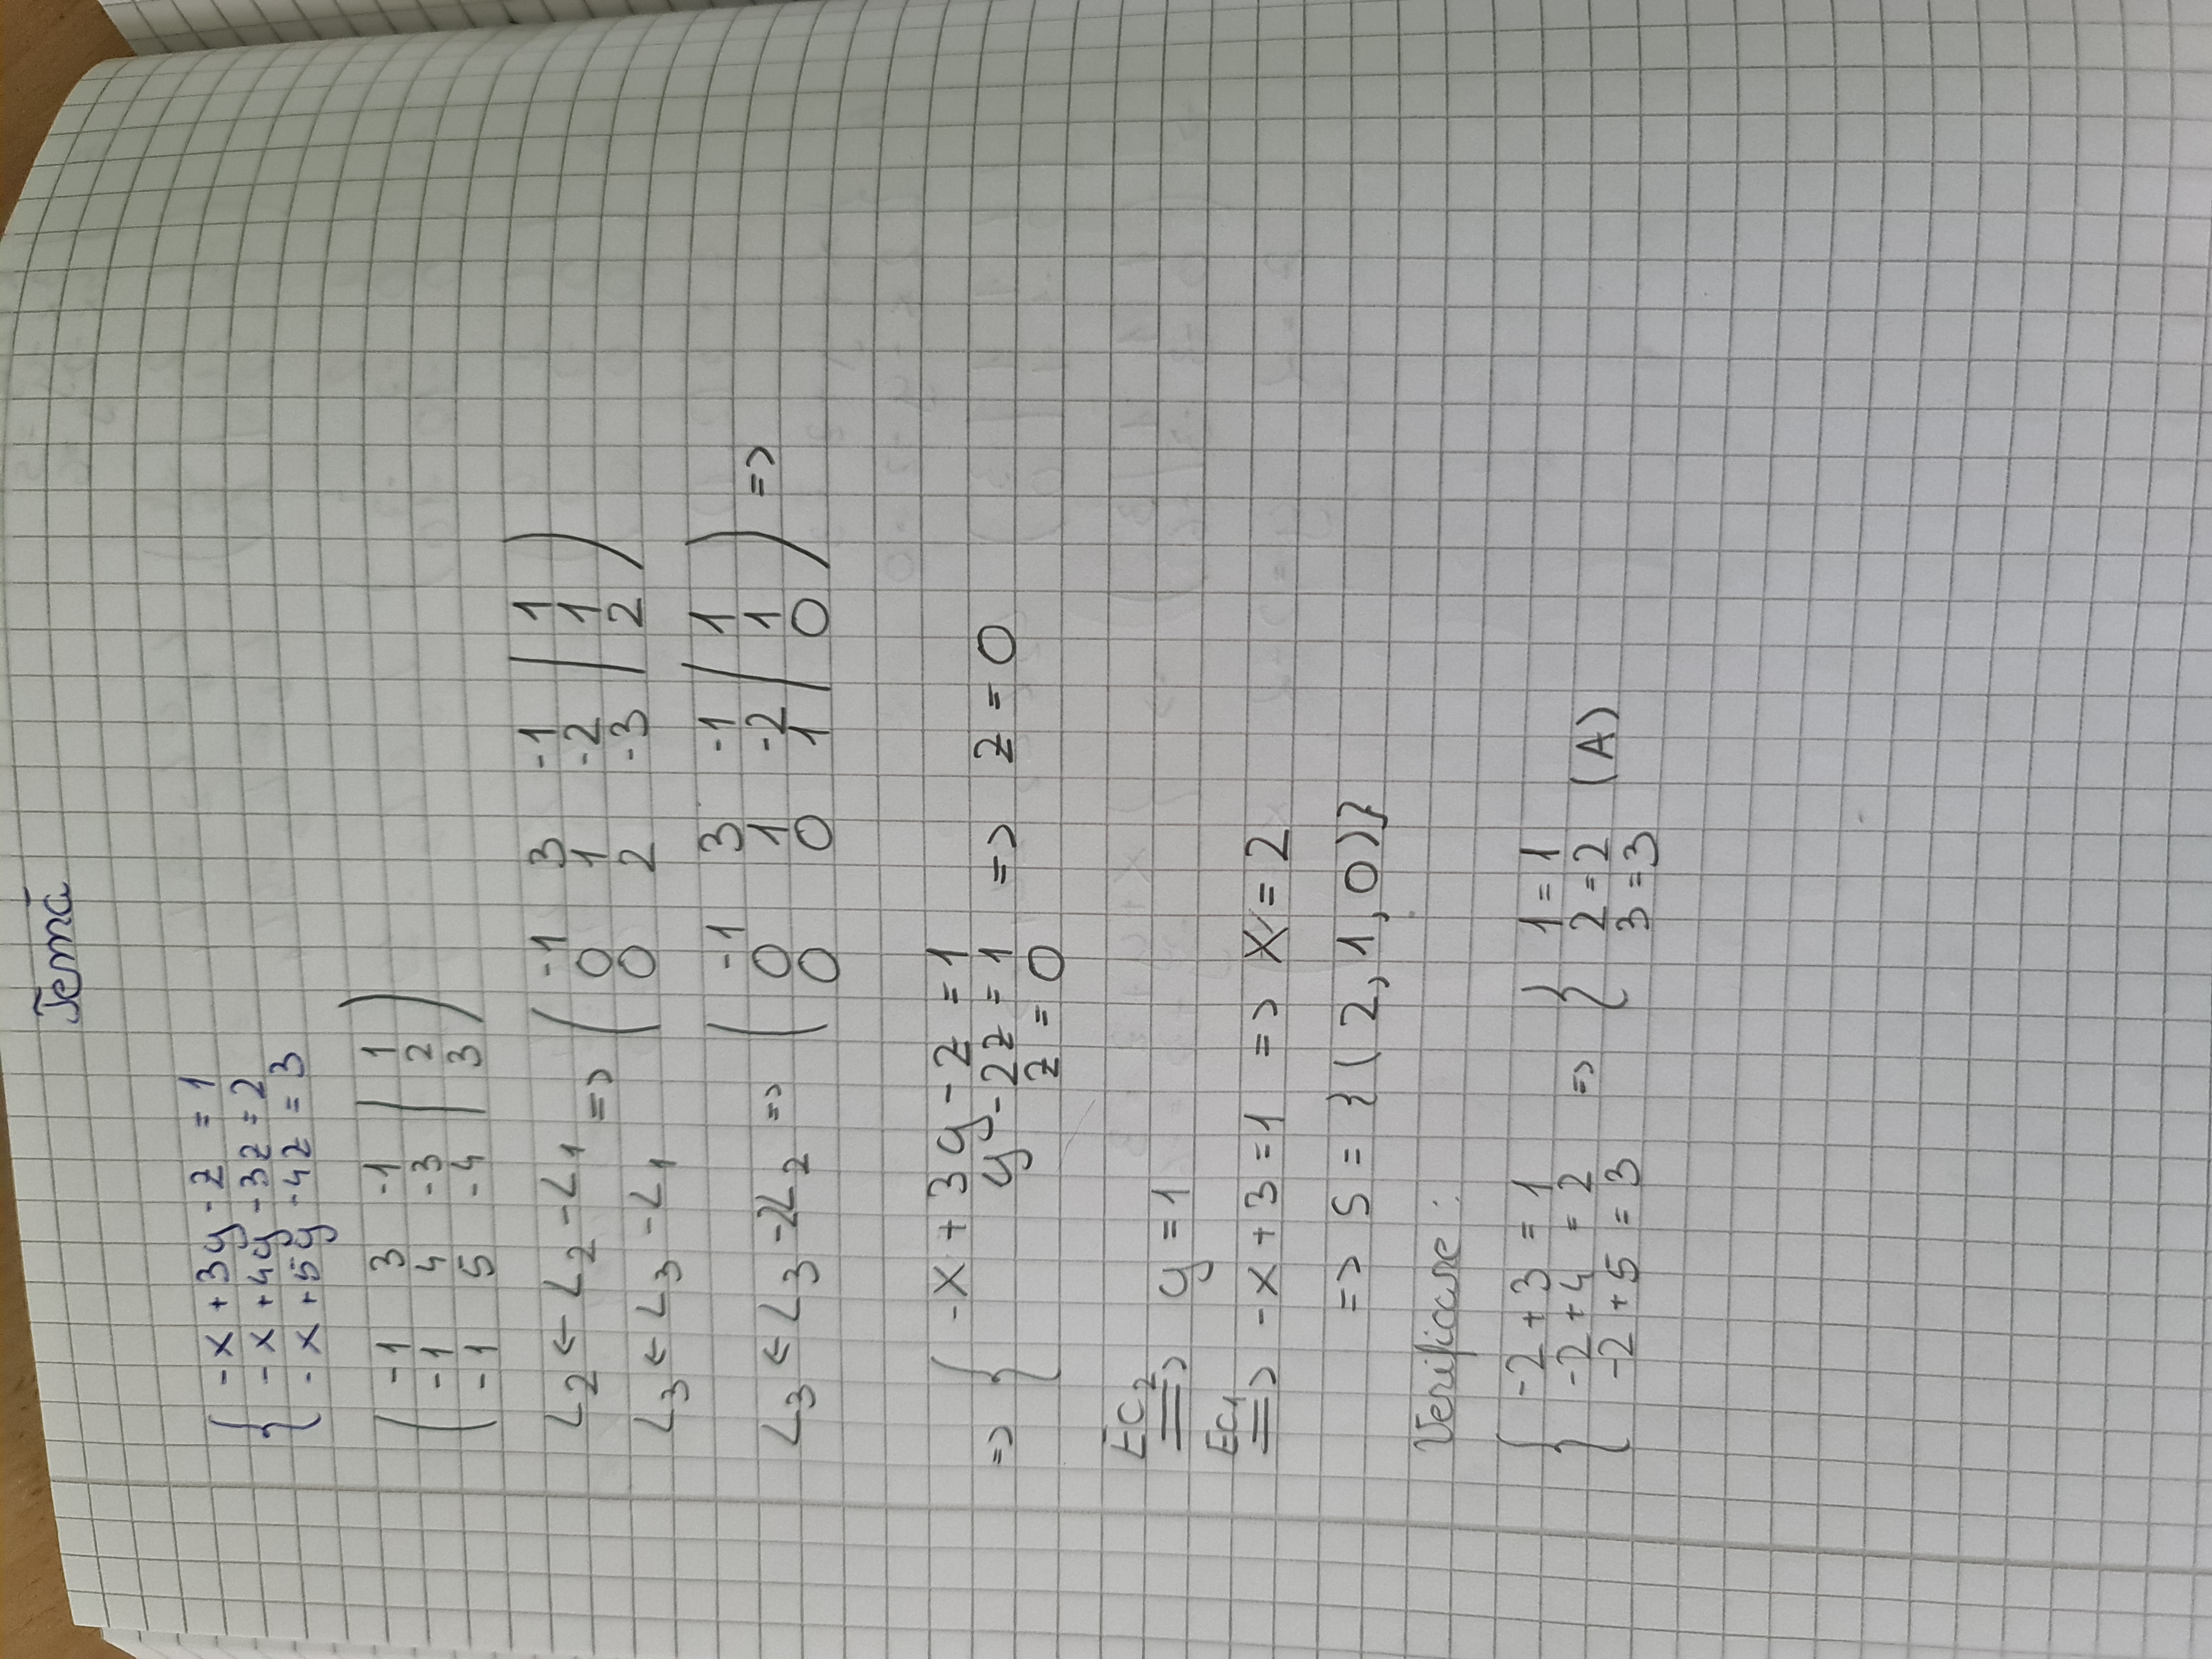 Temă
{ -x + 3y - z = 1
-x + 4y - 3z = 2
-x + 5y - 4z = 3
( -1 3 -1 | 1 )
-1 4 -3 | 2
-1 5 -4 | 3
L2 ← L2 - L1
L3 ← L3 - L1
=> ( -1 3 -1 | 1 )
0 1 -2 | 1
0 2 -3 | 2
L3 ← L3 - 2L2 => ( -1 3 -1 | 1 ) =>
0 1 -2 | 1
0 0 1 | 0
=> { -x + 3y - z = 1
y - 2z = 1 => z = 0
z = 0
Ec2 => y = 1
Ec1 => -x + 3 = 1 => x = 2
=> S = {(2, 1, 0)}
Verificare :
{ -2 + 3 = 1
-2 + 4 = 2
-2 + 5 = 3
=> { 1 = 1
2 = 2 (A)
3 = 3